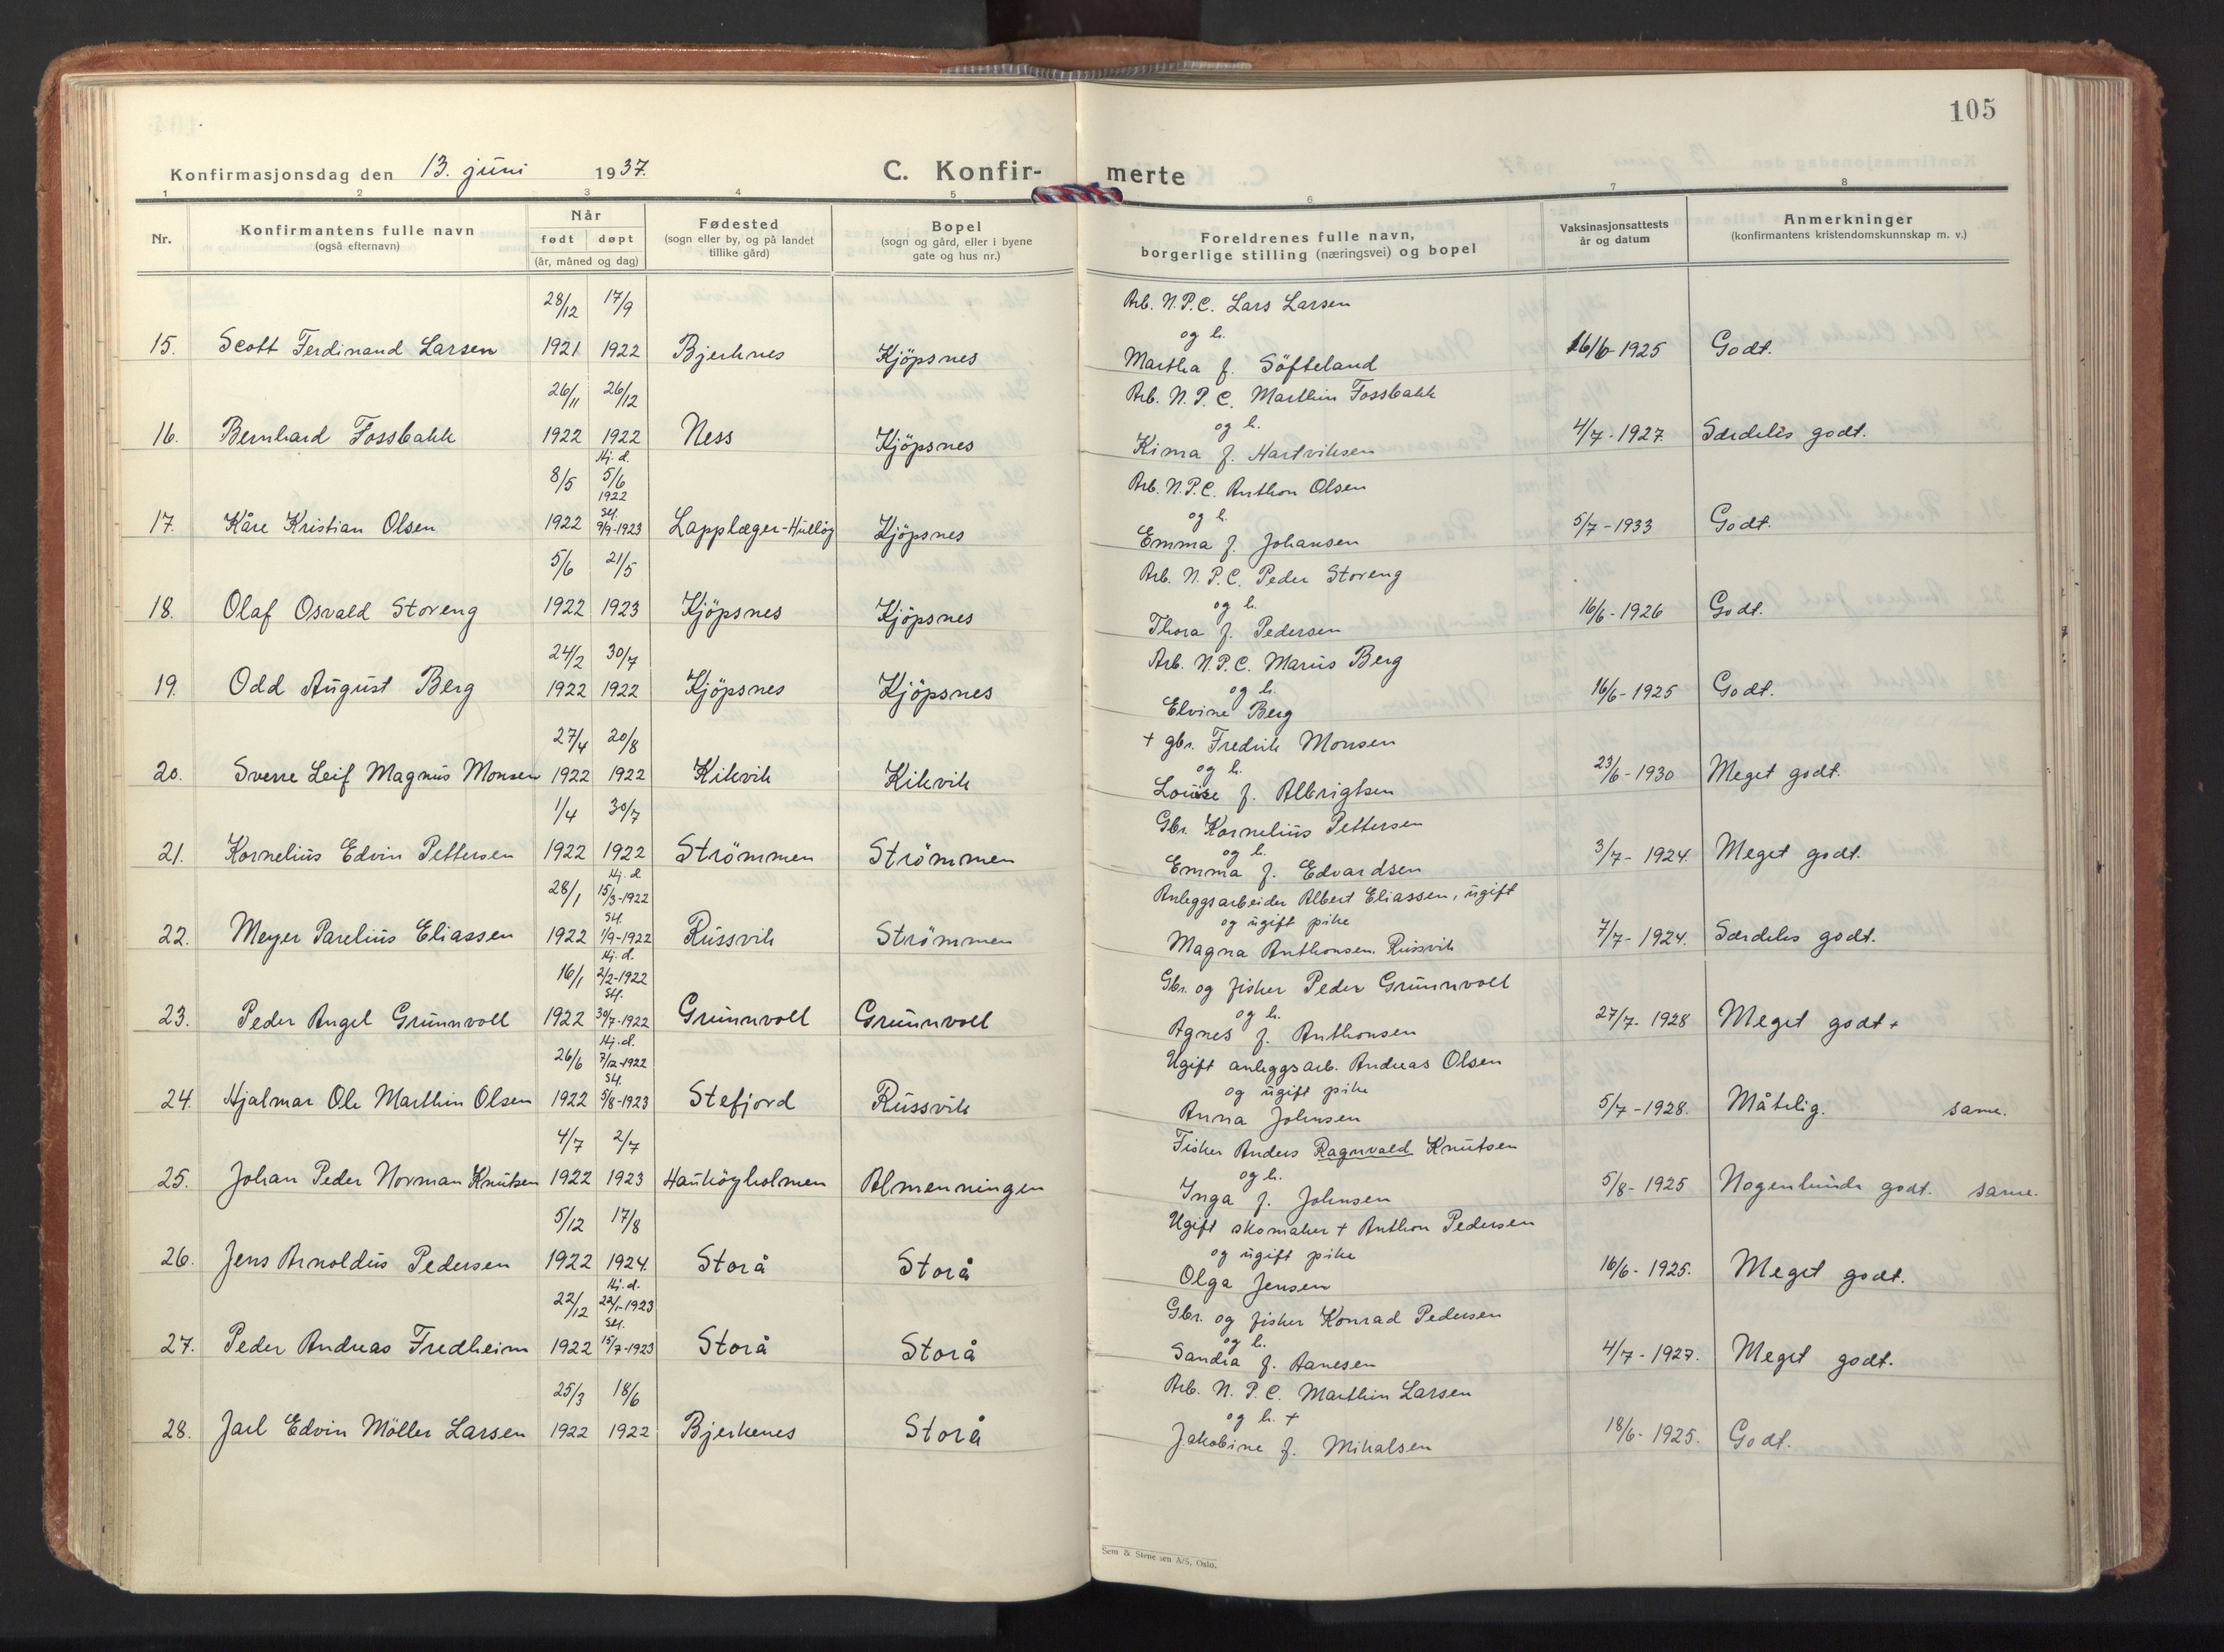 105
Konfirmasjonsdag den 13. juni 1937. C. Konfirmerte
1 2 3 4 5 6 7 8
Nr. Konfirmantens fulle navn (også efternavn) Når født døpt (år, måned og dag) Fødested (sogn eller by, og på landet tillike gård) Bopel (sogn og gård, eller i byene gate og hus nr.) Foreldrenes fulle navn, borgerlige stilling (næringsvei) og bopel Vaksinasjonsattests år og datum Anmerkninger (konfirmantens kristendomskunnskap m. v.)
28/12 17/9 Arb. N.P.C. Lars Larsen
og h.
15. Scott Ferdinand Larsen 1921 1922 Bjerknes Kjöpsnes Martha f. Söfteland 16/6-1925 Godt.
26/11 26/12 Arb. N.P.C. Marthin Fossbakk
og h.
16. Bernhard Fossbakk 1922 1922 Ness Kjöpsnes Kima f. Hartviksen 4/7-1927. Særdeles godt.
8/5 Hj. d. 5/6 1922 Arb. N.P.C. Anthon Olsen
og h.
17. Kåre Kristian Olsen 1922 St. 9/9-1923 Lapplæger-Hulløy Kjöpsnes Emma f. Johansen 5/7-1933 Godt.
5/6 21/5 Arb. N.P.C. Peder Storeng
og h.
18. Olaf Osvald Storeng 1922 1923 Kjöpsnes Kjöpsnes Thora f. Pedersen 16/6-1926 Godt.
24/2 30/7 Arb. N.P.C. Marius Berg
og h.
19. Odd August Berg 1922 1922 Kjöpsnes Kjöpsnes Elvine Berg 16/6-1925 Godt.
27/4 20/8 + gbr. Fredrik Monsen
og h.
20. Sverre Leif Magnus Monsen 1922 1922 Kilvik Kilvik Louise f. Albrigtsen 23/6-1930 Meget godt.
1/4 30/7 Gbr. Kornelius Pettersen
og h.
21. Kornelius Edvin Pettersen 1922 1922 Strömmen Strömmen Emma f. Edvardsen 3/7-1924. Meget godt.
28/1 Hj. d. 15/3-1922 Anleggsarbeider Albert Eliassen, ugift
og ugift pike
22. Meyer Parelius Eliassen 1922 St. 1/9-1922 Russvik Strömmen Magna Anthonsen Russvik 7/7-1924. Særdeles godt.
16/1 Hj. d. 2/2-1922 Gbr. og fisker Peder Grunnvoll
og h.
23. Peder Angel Grunnvoll 1922 St. 30/7-1922 Grunnvoll Grunnvoll Agnes f. Anthonsen 27/7-1928 Meget godt+
26/6 Hj. d. 7/12-1922 Ugift anleggsarb. Andreas Olsen
og ugift pike
24. Hjalmar Ole Marthin Olsen 1922 St. 5/8-1923 Stefjord Russvik Anna Johnsen 5/7-1928. Måtelig. same.
4/7 2/7 Fisker Anders Ragnvald Knutsen
og h.
25. Johan Peder Norman Knutsen 1922 1923 Haukøyholmen Almenningen Inga f. Johnsen 5/8-1925 Nogenlunde godt. same.
5/12 17/8 Ugift skomaker + Anthon Pedersen
og ugift pike
26. Jens Arnoldus Pedersen 1922 1924. Storå Storå Olga Jensen 16/6-1925. Meget godt.
22/12 Hj. d. 22/1-1923 Gbr. og fisker Konrad Pedersen
og h.
27. Peder Andreas Fredheim 1922 St. 15/7-1923 Storå Storå Sandra f. Aanesen 4/7-1927. Meget godt.
25/3 18/6 Arb. N.P.C. Marthin Larsen
og h. +
28. Jarl Edvin Möller Larsen 1922 1922 Bjerkenes Storå Jakobine f. Mikalsen 18/6-1925. Godt.
Sem & Stenersen A/S, Oslo.